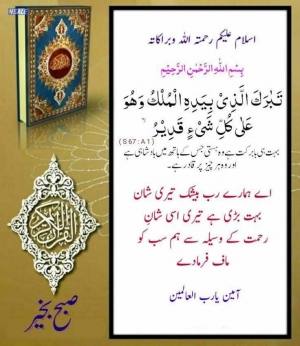 اسلام علیکم رحمتہ اللہ وبراکاتہ
بِسْمِ اللّٰهِ الرَّحْمٰنِ الرَّحِیْمِ
تَبٰرَكَ الَّذِیْ بِیَدِهِ الْمُلْكُ وَهُوَ
عَلٰى كُلِّ شَیْءٍ قَدِیْرُ
(S67:A1)
بہت ہی بابرکت ہے وہ ہستی جس کے ہاتھ میں بادشاہی ہے
اور وہ ہر چیز پر قادر ہے۔
اے ہمارے رب بیشک تیری شان
بہت بڑی ہے تیری اسی شانِ
رحمت کے وسیلہ سے ہم سب کو
ماف فرمادے
آمین یارب العالمین
القرآن الكريم
صبح بخیر